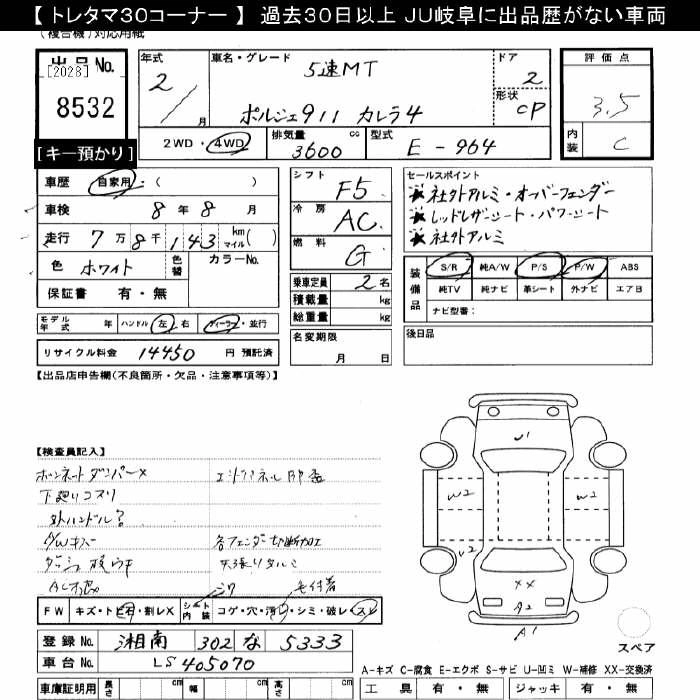 【 トレタマ30コーナー 】 過去30日以上 JU岐阜に出品歴がない車両
(複合機)対応用紙
出品 No. [2028] 8532
[キー預かり]
年式 2 / 月
車名・グレード 5速MT
ポルシェ911 カレラ4
ドア 2
形状 CP
評価点 3.5
内装 C
2WD・4WD 排気量 3600 cc 型式 E-964
車歴 自家用・( )
車検 8 年 8 月
走行 7 万 8 千 143 km マイル ( )
色 ホワイト 色替 カラーNo.
保証書 有・無
シフト F5
冷房 AC
燃料 G
乗車定員 2 名
積載量 kg
総重量 kg
名変期限 月 日
セールスポイント
★社外アルミ・オーバーフェンダー
★レッドレザーシート・パワーシート
★社外アルミ
装備品 S/R 純A/W P/S P/W ABS
純TV 純ナビ 革シート 外ナビ エアB
ナビ型番:
後日品
モデル年式 年 ハンドル 左 右 ディーラー・並行
リサイクル料金 14450 円 預託済
【出品店申告欄(不良箇所・欠品・注意事項等)】
【検査員記入】
ボンネットダンパー×
下廻りコスリ
外ハンドル?
各フェンダー切断加工
天張りタルミ
シワ
FW キズ・トビ石・割レX シート内装 コゲ・穴・汚レ・シミ・破レ・スレ
登録 No. 湘南 302 な 5333
車台 No. LS405070
車庫証明用 長さ cm 幅 cm 高さ cm
U1
W2
W2
U2
XX
A2
A1
スペア
A-キズ C-腐食 E-エクボ S-サビ U-凹ミ W-補修 XX-交換済
工具 有・無 ジャッキ 有・無